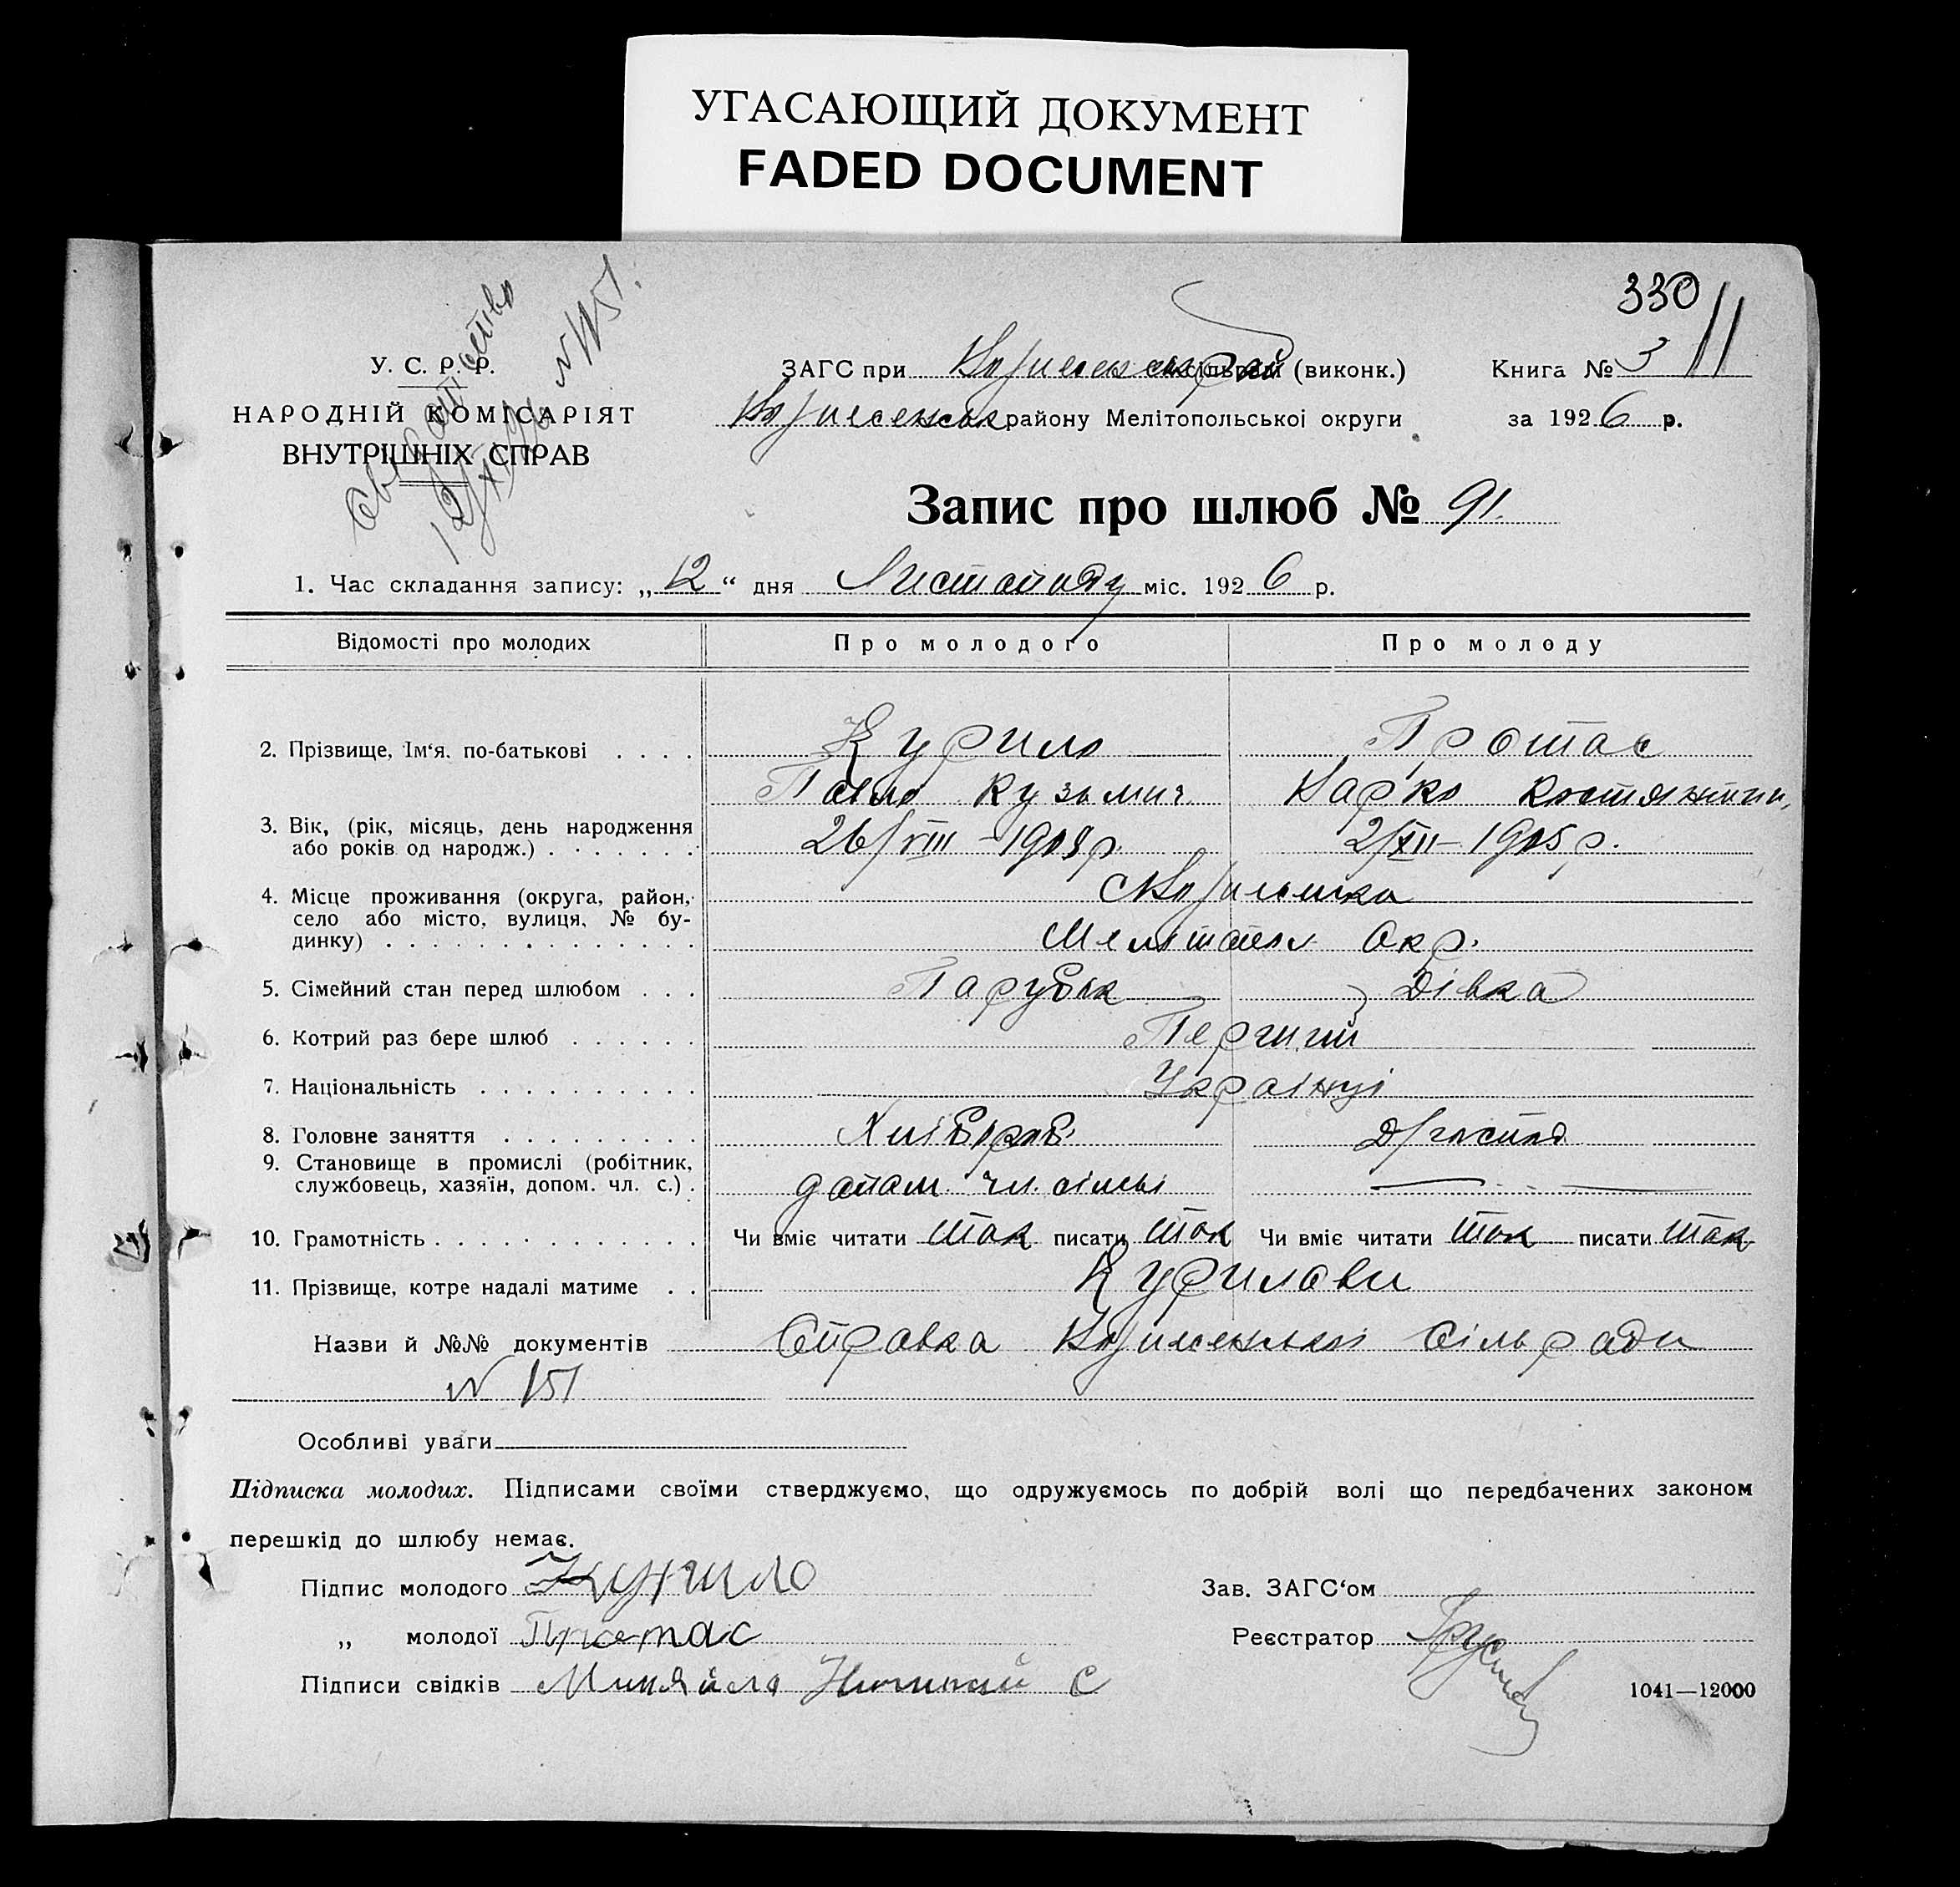 УГАСАЮЩИЙ ДОКУМЕНТ
FADED DOCUMENT
330
У. С. Р. Р.
НАРОДНІЙ КОМІСАРІЯТ
ВНУТРІШНІХ СПРАВ
№ 151
ЗАГС при сільрай (виконк.)
району Мелітопольської округи
Книга № 3
за 1926 р.
Запис про шлюб № 91.
1. Час складання запису: „12“ дня Листопаду міс. 1926 р.
Відомості про молодих Про молодого Про молоду
2. Прізвище, Ім‘я, по-батькові . . . . Курило Протас
Павло Кузьмич
3. Вік, (рік, місяць, день народження
або років од народж.) . . . . . . . 26/VIII 2/XII – 1905 р.
4. Місце проживання (округа, район,
село або місто, вулиця, № бу-
динку) . . . . . . . . . . . . . . Мелітопол Окр.
5. Сімейний стан перед шлюбом . . . Парубок Дівка
6. Котрий раз бере шлюб . . . . . .
7. Національність . . . . . . . . . . Українці
8. Головне заняття . . . . . . . . . Хлібороб
9. Становище в промислі (робітник,
службовець, хазяїн, допом. чл. с.) . допом. чл. сімьі
10. Грамотність . . . . . . . . . . . . Чи вміє читати так писати так Чи вміє читати так писати так
11. Прізвище, котре надалі матиме . . Курилови
Назви й №№ документів Справка сільради
№ 151
Особливі уваги
Підписка молодих. Підписами своїми стверджуємо, що одружуємось по добрій волі що передбачених законом
перешкід до шлюбу немає.
Підпис молодого Курило Зав. ЗАГС‘ом
„ молодої Протас Реєстратор
Підписи свідків С 1041—12000